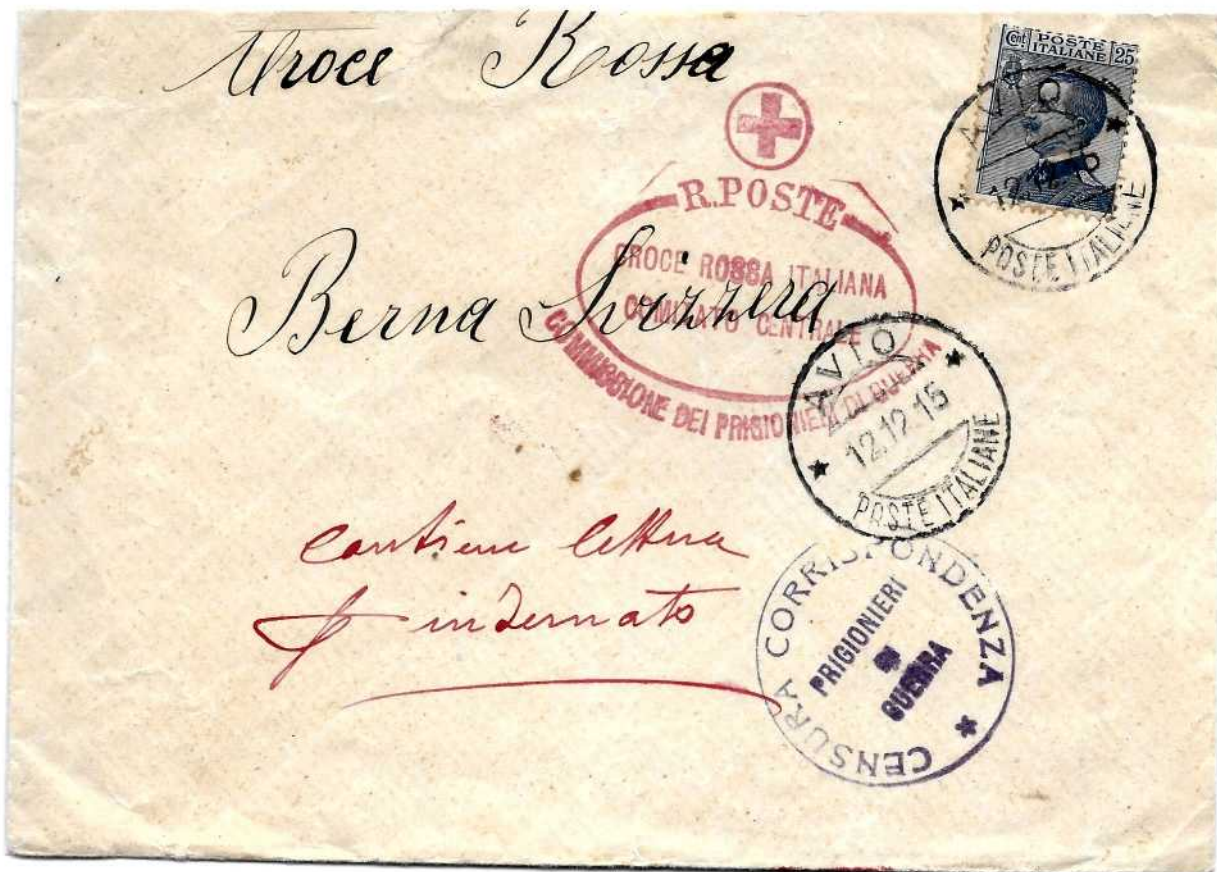 Croce Rossa
Cent. POSTE ITALIANE 25
AVIO
12.12.15
POSTE ITALIANE
R. POSTE
CROCE ROSSA ITALIANA
COMITATO CENTRALE
COMMISSIONE DEI PRIGIONIERI DI GUERRA
Berna Svizzera
AVIO
12.12.15
POSTE ITALIANE
contiene lettera
internato
CENSURA CORRISPONDENZA
PRIGIONIERI
DI
GUERRA